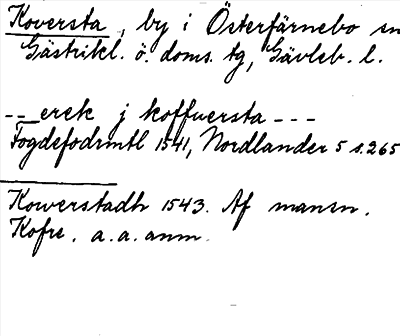 Koversta, by i Österfärnebo sn
Gästrikl. ö. doms. tg, Gävleb. l.
-- erek j koffuersta ---
Fogdefodrmtl 1541, Nordlander 5 s. 265
Kowerstadh 1543. Af mansn.
Kofre. a. a. anm.